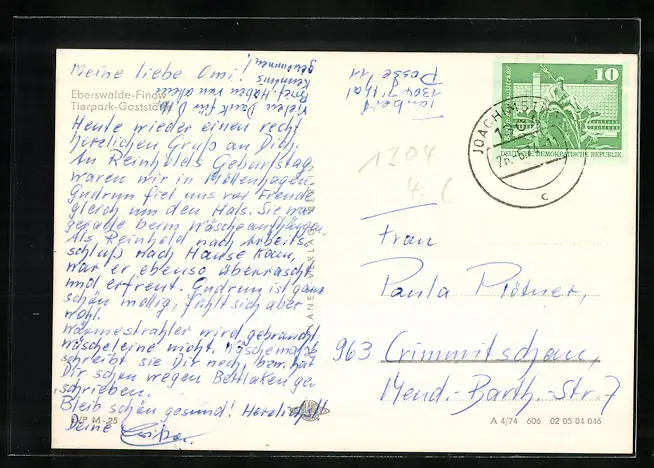 Meine liebe Omi!
Eberswalde-Finow
Tierpark-Gaststätte
Vielen Dank für D. lb.
Brief. Haben von allem
Kenntnis
genommen!
Heute wieder einen recht
herzlichen Gruß an Dich.
An Reinholds Geburtstag
waren wir in Möllenhagen.
Gudrun fiel uns vor Freude
gleich um den Hals. Sie war
gerade beim Wäscheaufhängen.
Als Reinhold nach Arbeits-
schluß nach Hause kam,
war er ebenso überrascht
und erfreut. Gudrun ist ganz
schön mollig, fühlt sich aber
wohl.
Wärmestrahler wird gebraucht,
Wäscheleine nicht. Wäschemappe
schreibt sie Dir noch, bzw. hat
Dir schon wegen Bettlaken ge-
schrieben.
Bleib schön gesund! Herzlichst
Deine
M-25
1301
Posse 11
10
DEUTSCHE DEMOKRATISCHE REPUBLIK
JOACHIMSTHAL
c
1304
Frau
Paula Plötner,
963 Crimmitschau,
Mend.-Barth.-Str. 7
A 4/74 606 02 05 04 046